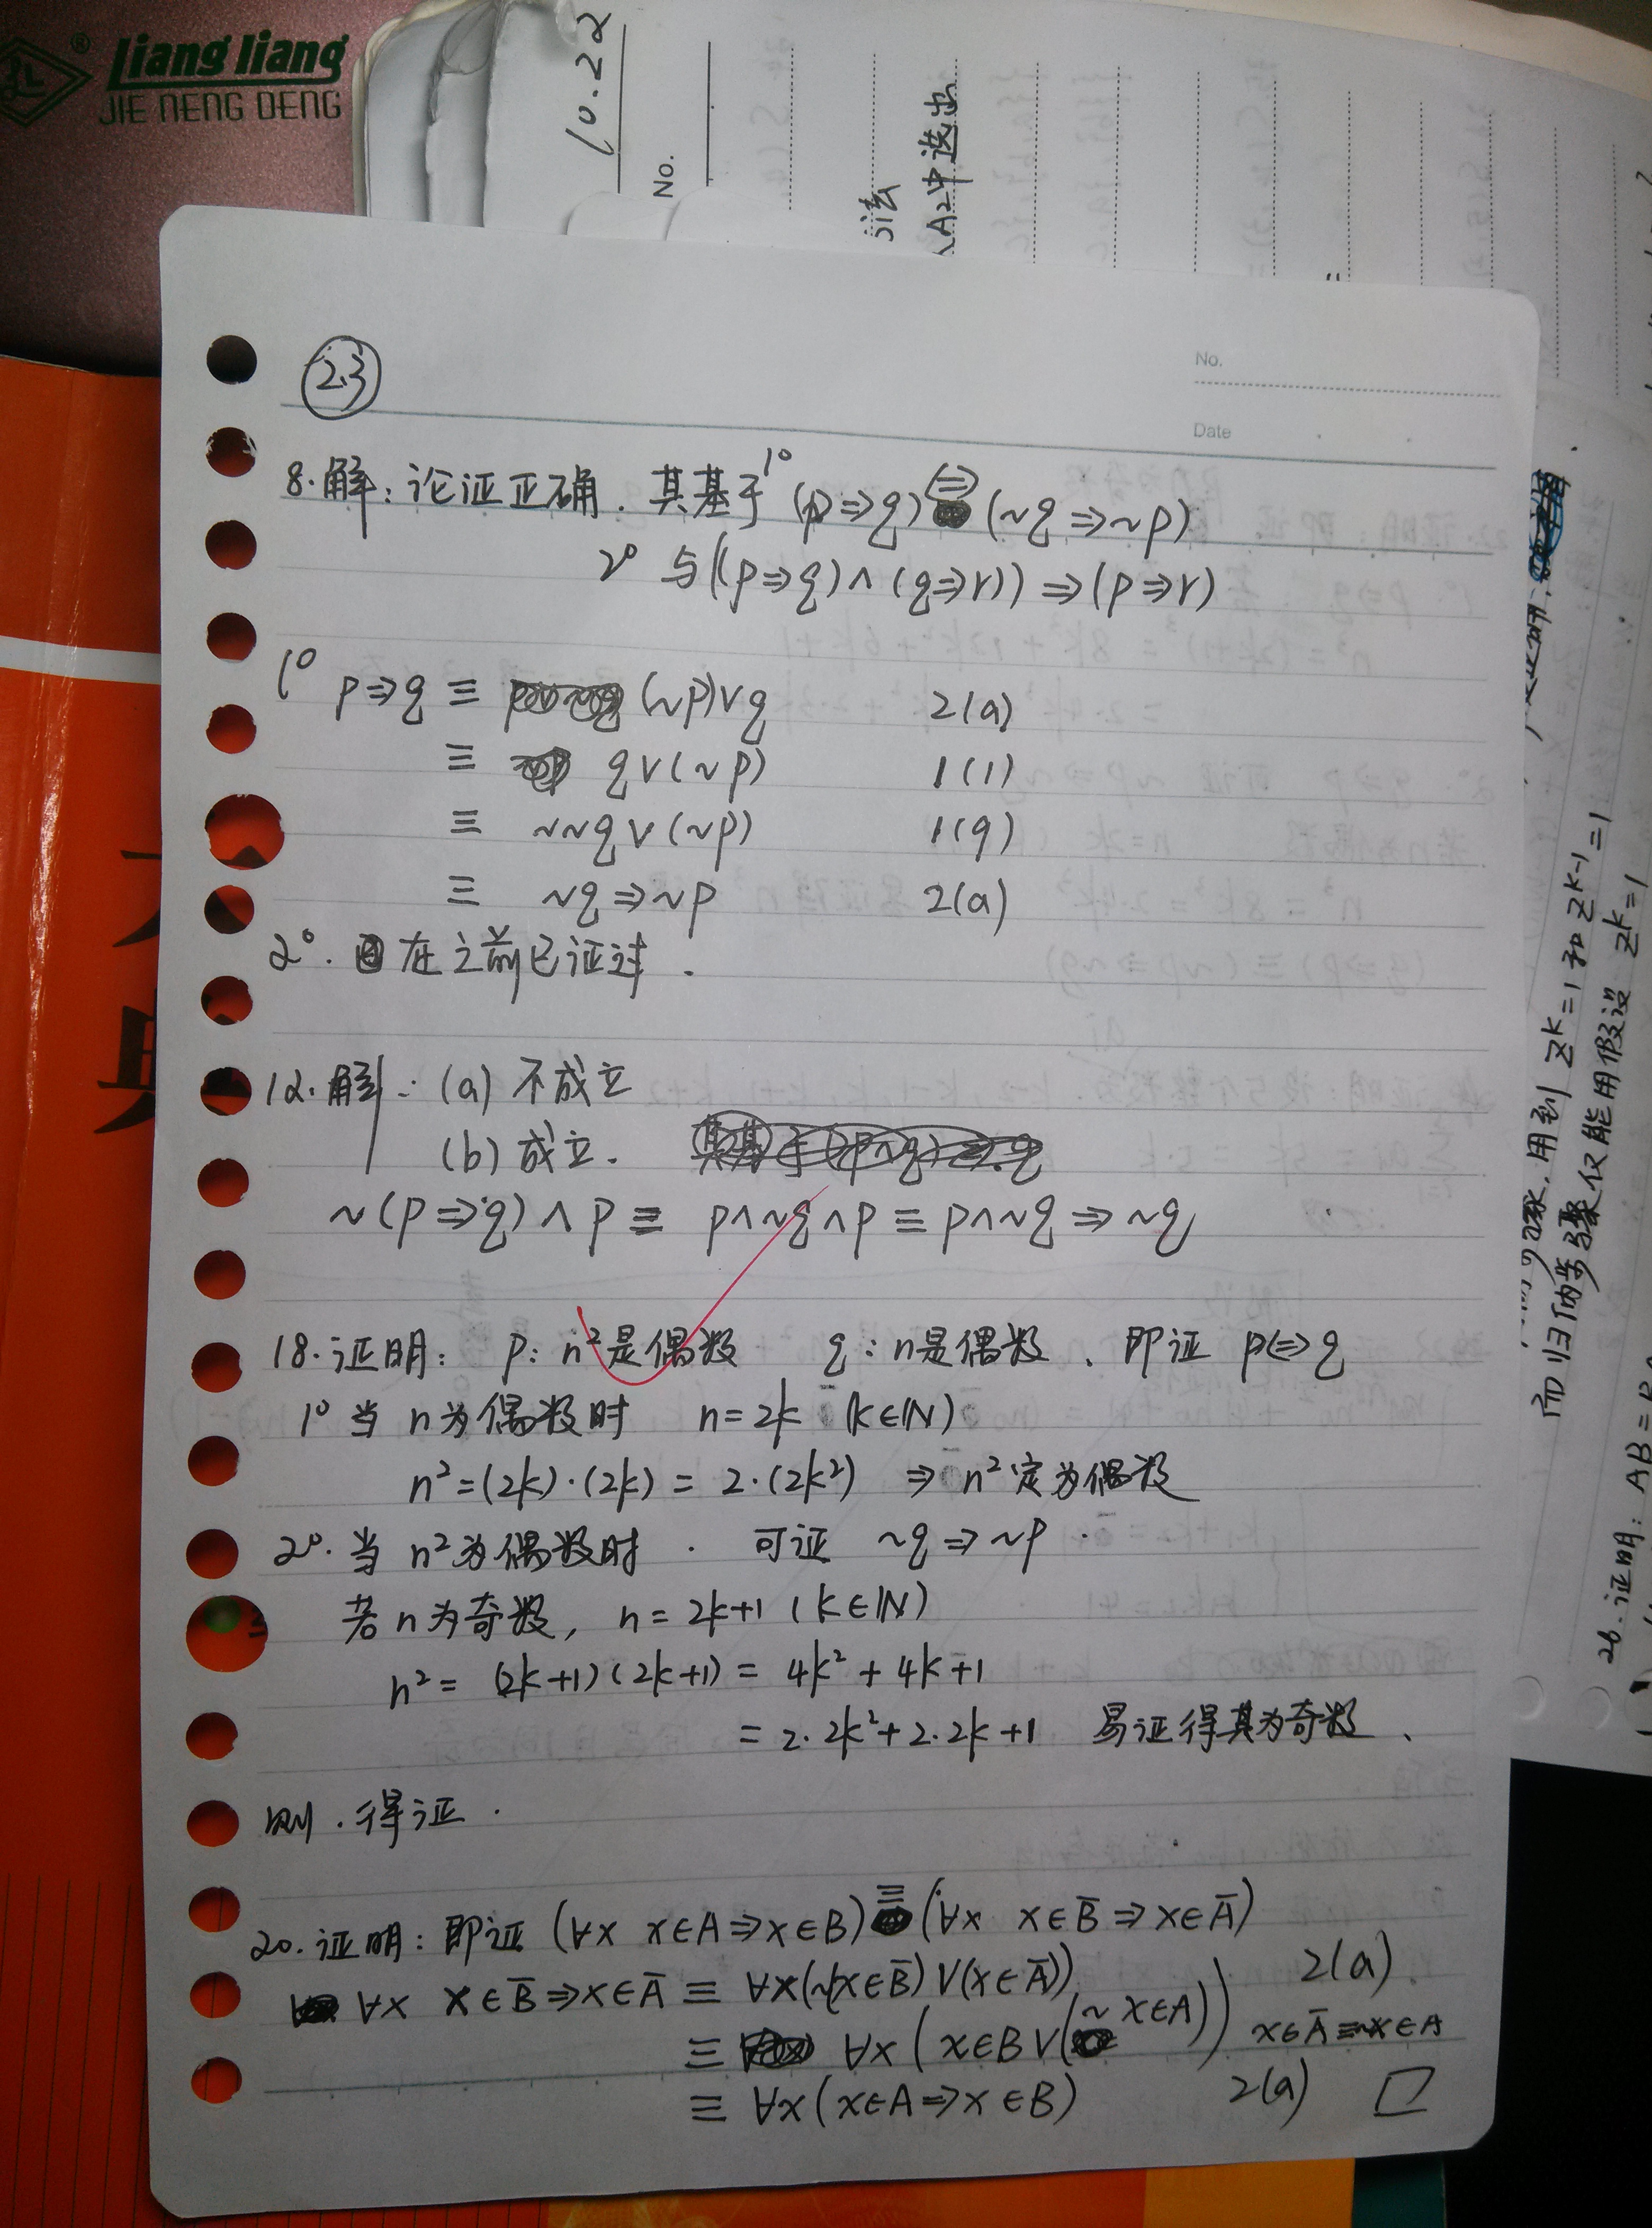 Liang liang
JIE NENG DENG
10.22
No.
A2中选出
2.3
No.
Date
8.解:论证正确.其基于1° (p⇒q)⇔(~q⇒~p)
2° 与((p⇒q)∧(q⇒r))⇒(p⇒r)
1° p⇒q ≡ (~p)∨q 2(a)
≡ q∨(~p) 1(1)
≡ ~~q∨(~p) 1(9)
≡ ~q⇒~p 2(a)
2°. 在之前已证过.
12.解:(a)不成立
(b)成立.
~(p⇒q)∧p ≡ p∧~q∧p ≡ p∧~q⇒~q
18.证明: p:n²是偶数 q:n是偶数.即证 p⇔q
1° 当n为偶数时 n=2k (k∈N)
n²=(2k)·(2k)=2·(2k²) ⇒ n²定为偶数
2°.当n²为偶数时.可证 ~q⇒~p.
若n为奇数, n=2k+1 (k∈N)
n²= (2k+1)(2k+1)= 4k²+4k+1
= 2·2k²+2·2k+1 易证得其为奇数.
则.得证.
20.证明:即证(∀x x∈A⇒x∈B)≡(∀x x∈B̅⇒x∈A̅)
∀x x∈B̅⇒x∈A̅ ≡ ∀x(~(x∈B̅)∨(x∈A̅)) 2(a)
≡ ∀x(x∈B∨(~x∈A)) x∈A̅≡~x∈A
≡ ∀x(x∈A⇒x∈B) 2(a) □
用到 z^k=1和z^k-1=1
而归纳步骤仅能用假设 z^k=1
26.证明: AB=